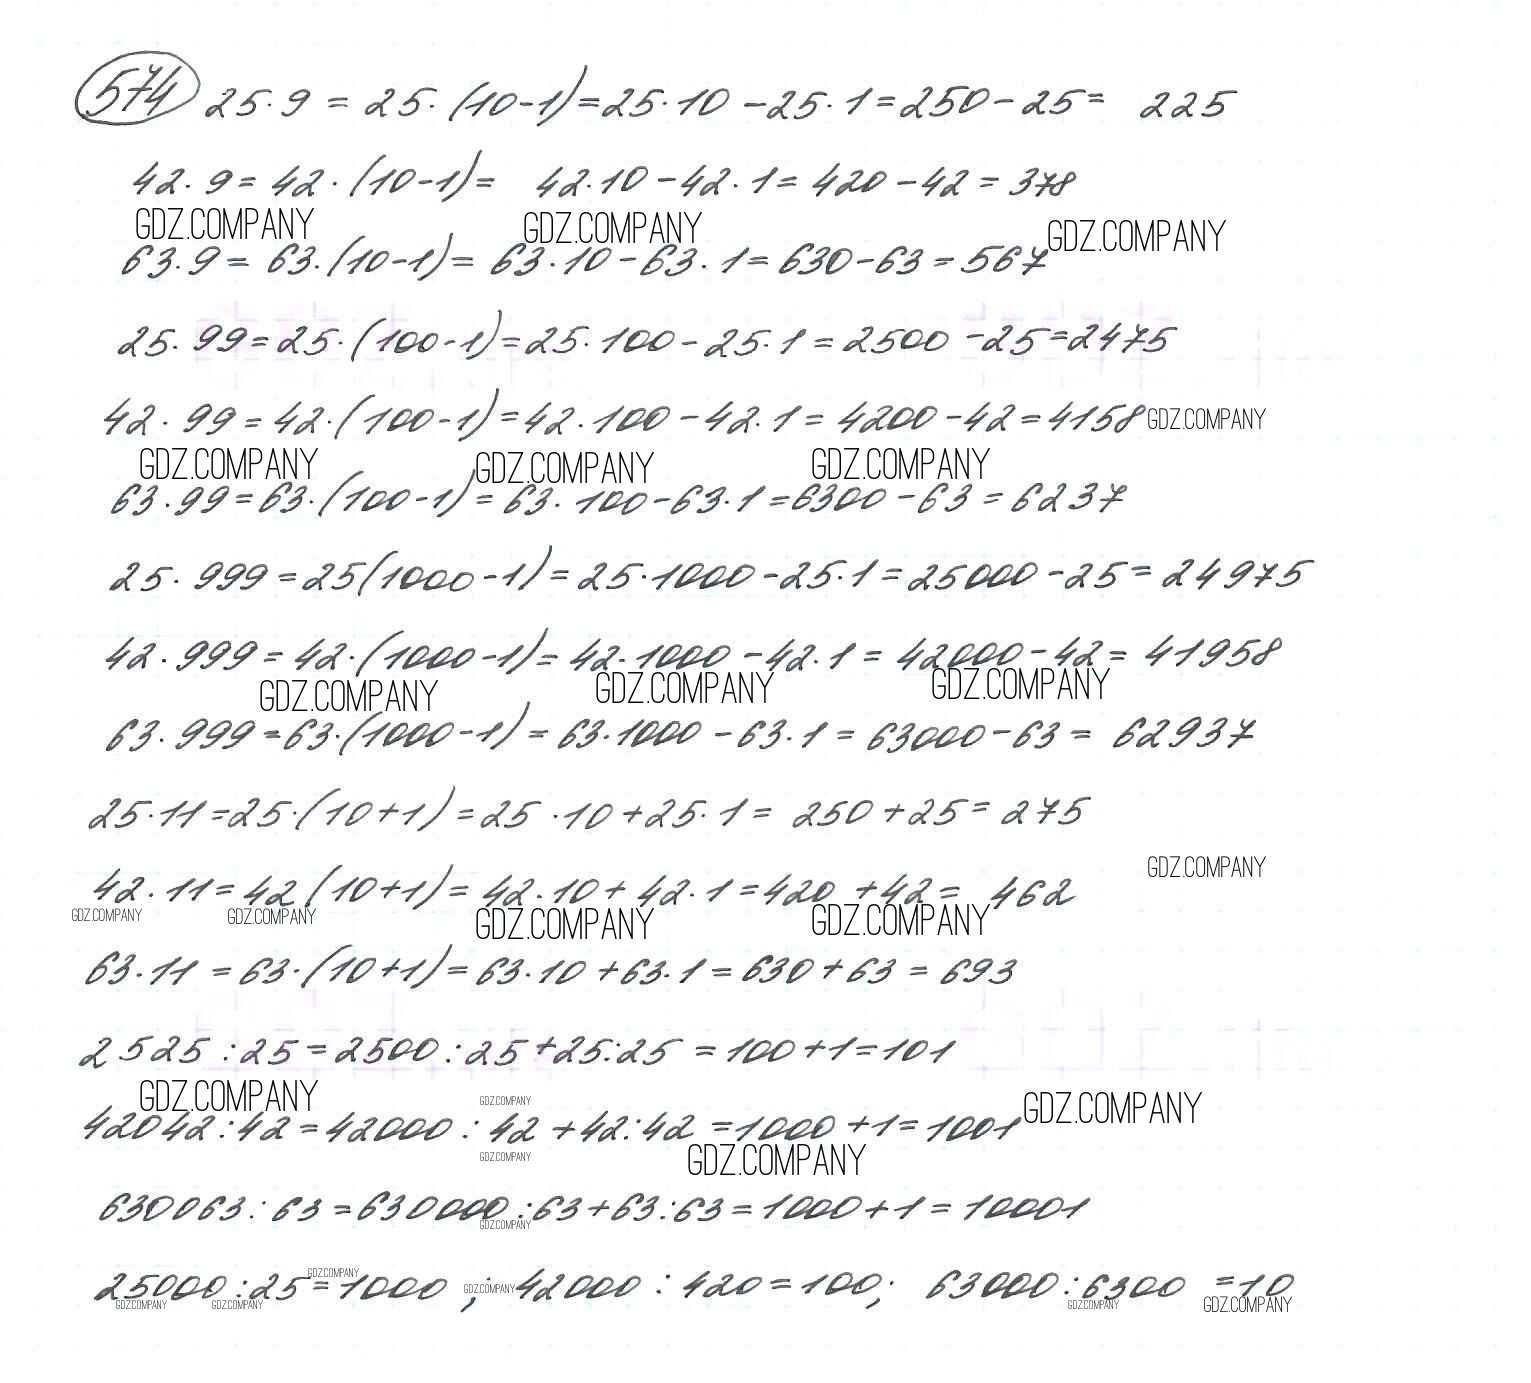 574 25·9 = 25·(10-1)=25·10-25·1=250-25= 225
42·9=42·(10-1)= 42·10-42·1=420-42=378
GDZ.COMPANY GDZ.COMPANY GDZ.COMPANY
63·9=63·(10-1)=63·10-63·1=630-63=567
25·99=25·(100-1)=25·100-25·1=2500-25=2475
42·99=42·(100-1)=42·100-42·1=4200-42=4158 GDZ.COMPANY
GDZ.COMPANY GDZ.COMPANY GDZ.COMPANY
63·99=63·(100-1)=63·100-63·1=6300-63=6237
25·999=25(1000-1)=25·1000-25·1=25000-25=24975
42·999=42·(1000-1)=42·1000-42·1=42000-42=41958
GDZ.COMPANY GDZ.COMPANY GDZ.COMPANY
63·999=63·(1000-1)=63·1000-63·1=63000-63=62937
25·11=25·(10+1)=25·10+25·1=250+25=275
42·11=42(10+1)=42·10+42·1=420+42=462 GDZ.COMPANY
GDZ.COMPANY GDZ.COMPANY GDZ.COMPANY GDZ.COMPANY
63·11=63·(10+1)=63·10+63·1=630+63=693
2525:25=2500:25+25:25=100+1=101
GDZ.COMPANY GDZ.COMPANY GDZ.COMPANY
42042:42=42000:42+42:42=1000+1=1001
GDZ.COMPANY GDZ.COMPANY
630063:63=630000:63+63:63=1000+1=10001
GDZ.COMPANY
GDZ.COMPANY GDZ.COMPANY
25000:25=1000; 42000:420=100; 63000:6300=10
GDZ.COMPANY GDZ.COMPANY GDZ.COMPANY GDZ.COMPANY